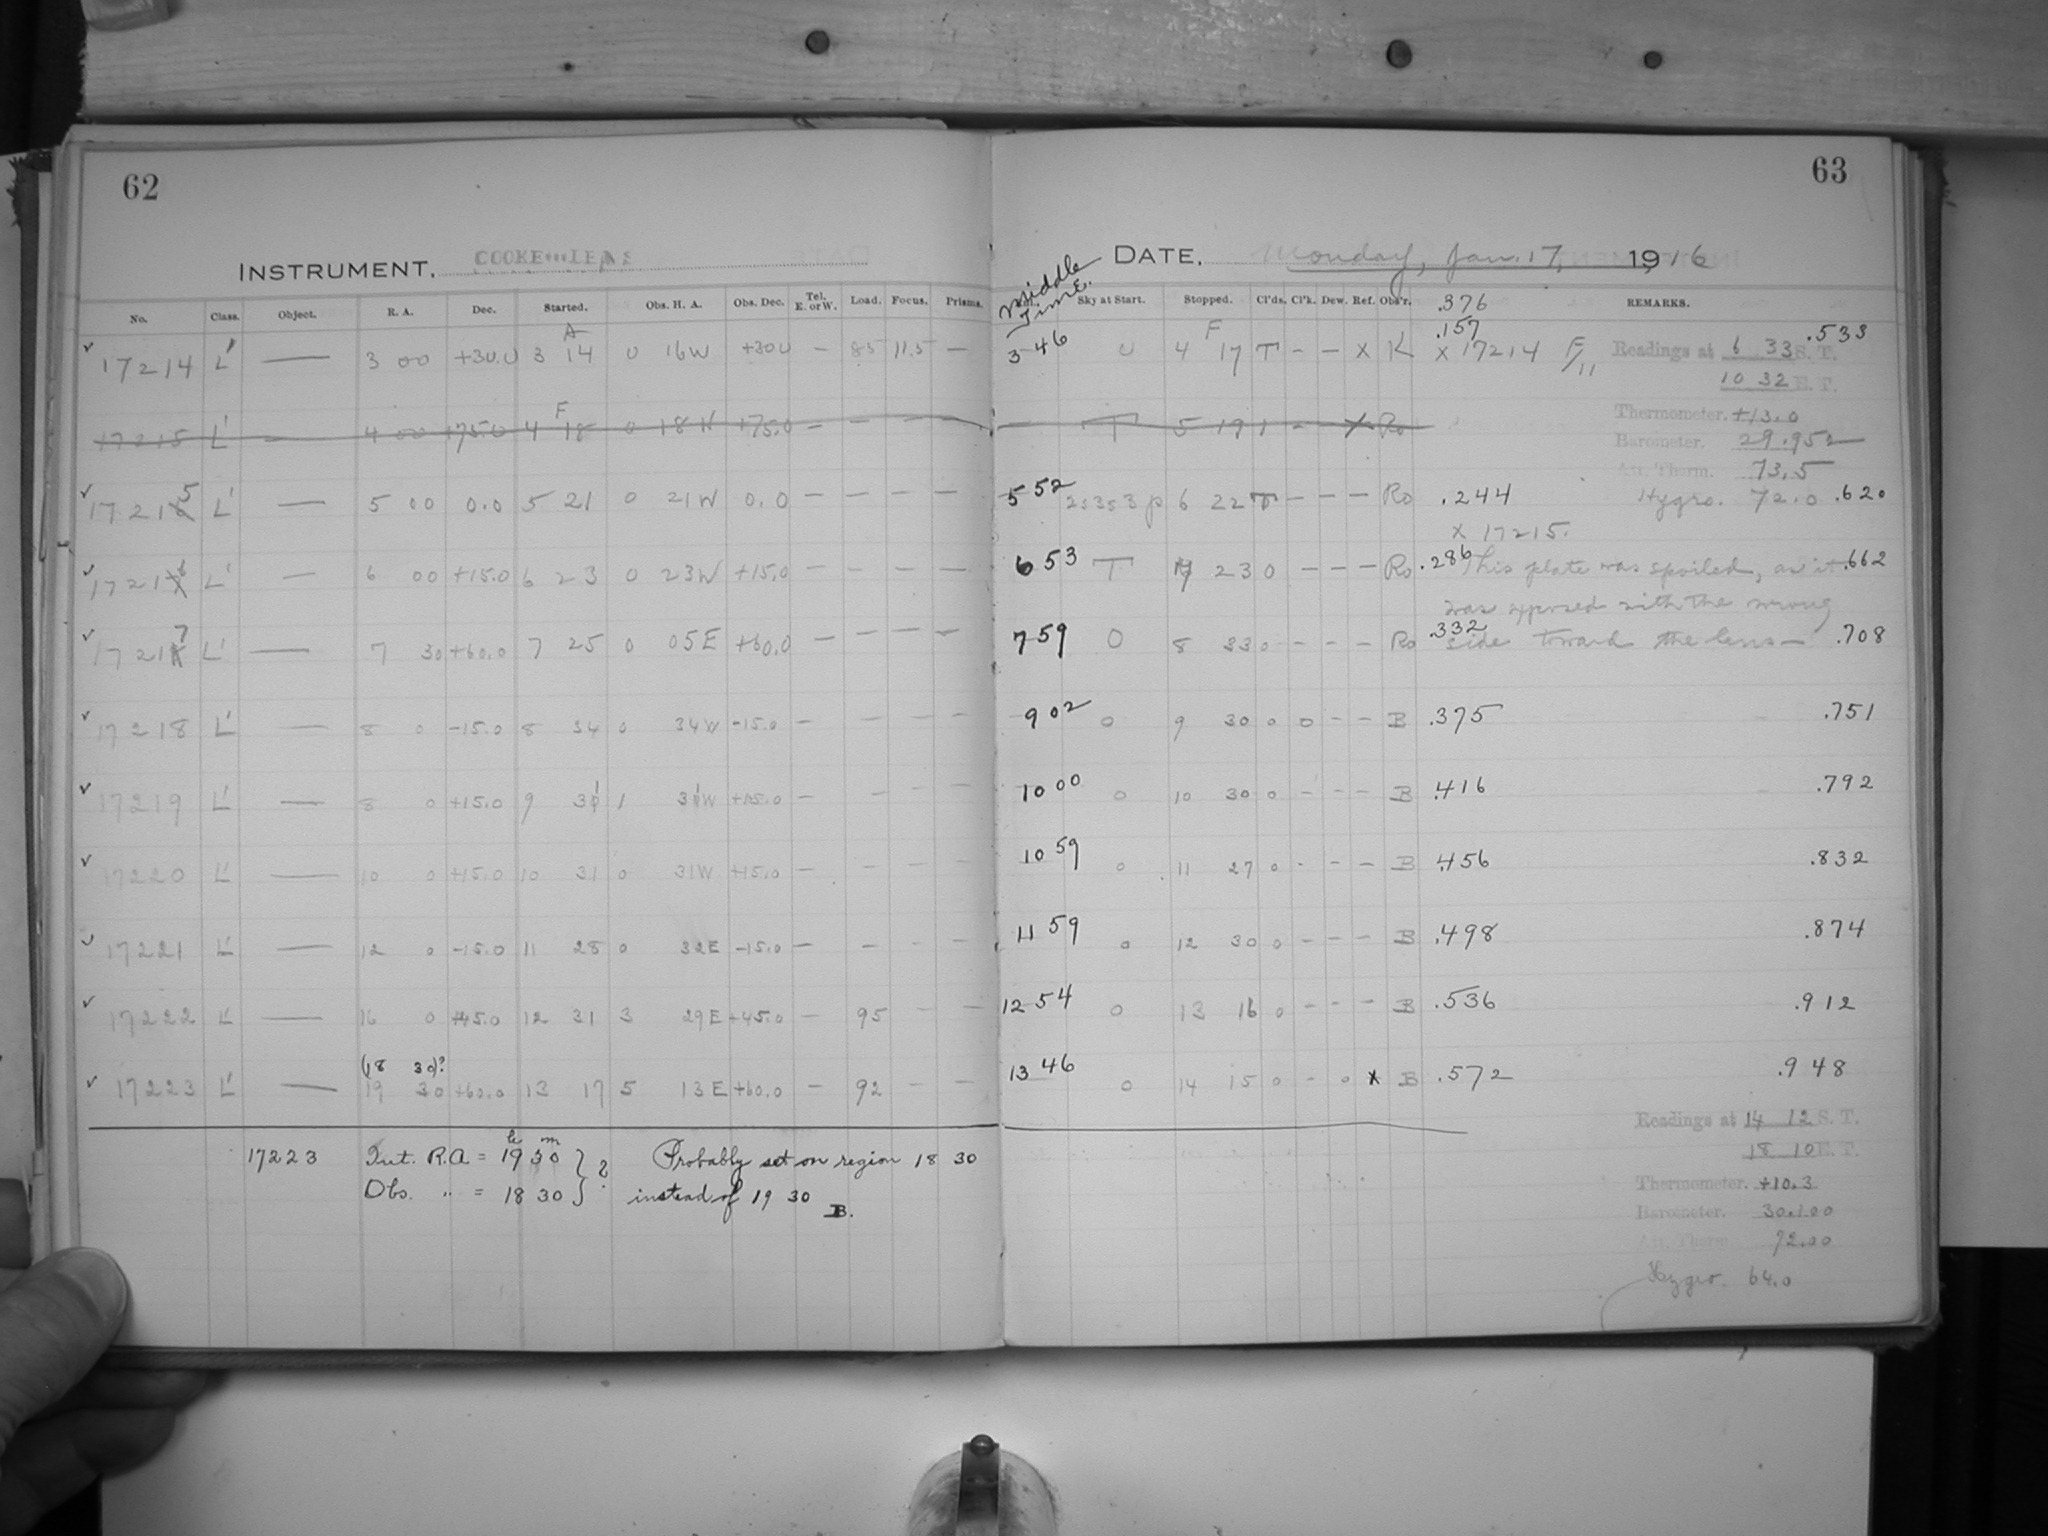 62
63
INSTRUMENT. COOKE LENS
DATE. Monday, Jan. 17, 1916
No. Class. Object. R. A. Dec. Started. Obs. H. A. Obs. Dec. Tel. E. or W. Load. Focus. Prisms.
Middle Time. Sky at Start. Stopped. Cl'ds. Cl'k. Dew. Ref. Obs'r. .376 REMARKS.
A F .157 .533
17214 L' — 3 00 +30.0 3 14 0 16W +30.0 — 85 11.5 — 3 46 0 4 17 T – – x K x 17214 F/11 Readings at 6 33 S. T.
10 32 E. T.
F Thermometer. +13.0
17215 L' — 4 00 +75.0 4 18 0 18W +75.0 – – – – — T 5 19 1 – – x Ro Barometer. 29.952
Att. Therm. 73.5
17215 L' — 5 00 0.0 5 21 0 21W 0.0 – – – – 5 52 2s3s3p 6 22 T – – – Ro .244 Hygro. 72.0 .620
x 17215.
17216 L' — 6 00 +15.0 6 23 0 23W +15.0 – – – – 6 53 T 7 23 0 – – – Ro .286 This plate was spoiled, as it .662
was exposed with the wrong
17217 L' — 7 30 +60.0 7 25 0 05E +60.0 – – – – 7 59 0 8 33 0 – – – Ro .332 side toward the lens— .708
17218 L' — 8 0 -15.0 8 34 0 34W -15.0 – – – – 9 02 0 9 30 0 0 – – B .375 .751
17219 L' — 8 0 +15.0 9 31 1 31W +15.0 – – – – 10 00 0 10 30 0 – – – B .416 .792
17220 L' — 10 0 +15.0 10 31 0 31W +15.0 – – – – 10 59 0 11 27 0 – – – B .456 .832
17221 L' — 12 0 -15.0 11 28 0 32E -15.0 – – – – 11 59 0 12 30 0 – – – B .498 .874
17222 L' — 16 0 +45.0 12 31 3 29E +45.0 – 95 – – 12 54 0 13 16 0 – – – B .536 .912
(18 30)?
17223 L' — 19 30 +60.0 13 17 5 13E +60.0 – 92 – – 13 46 0 14 15 0 – 0 x B .572 .948
Readings at 14 12 S. T.
18 10 E. T.
h m
17223 Int. R.A = 19 30 } ? Probably set on region 18 30
Obs. " = 18 30 instead of 19 30
B.
Thermometer. +10.3
Barometer. 30.100
Att. Therm. 72.00
Hygro. 64.0